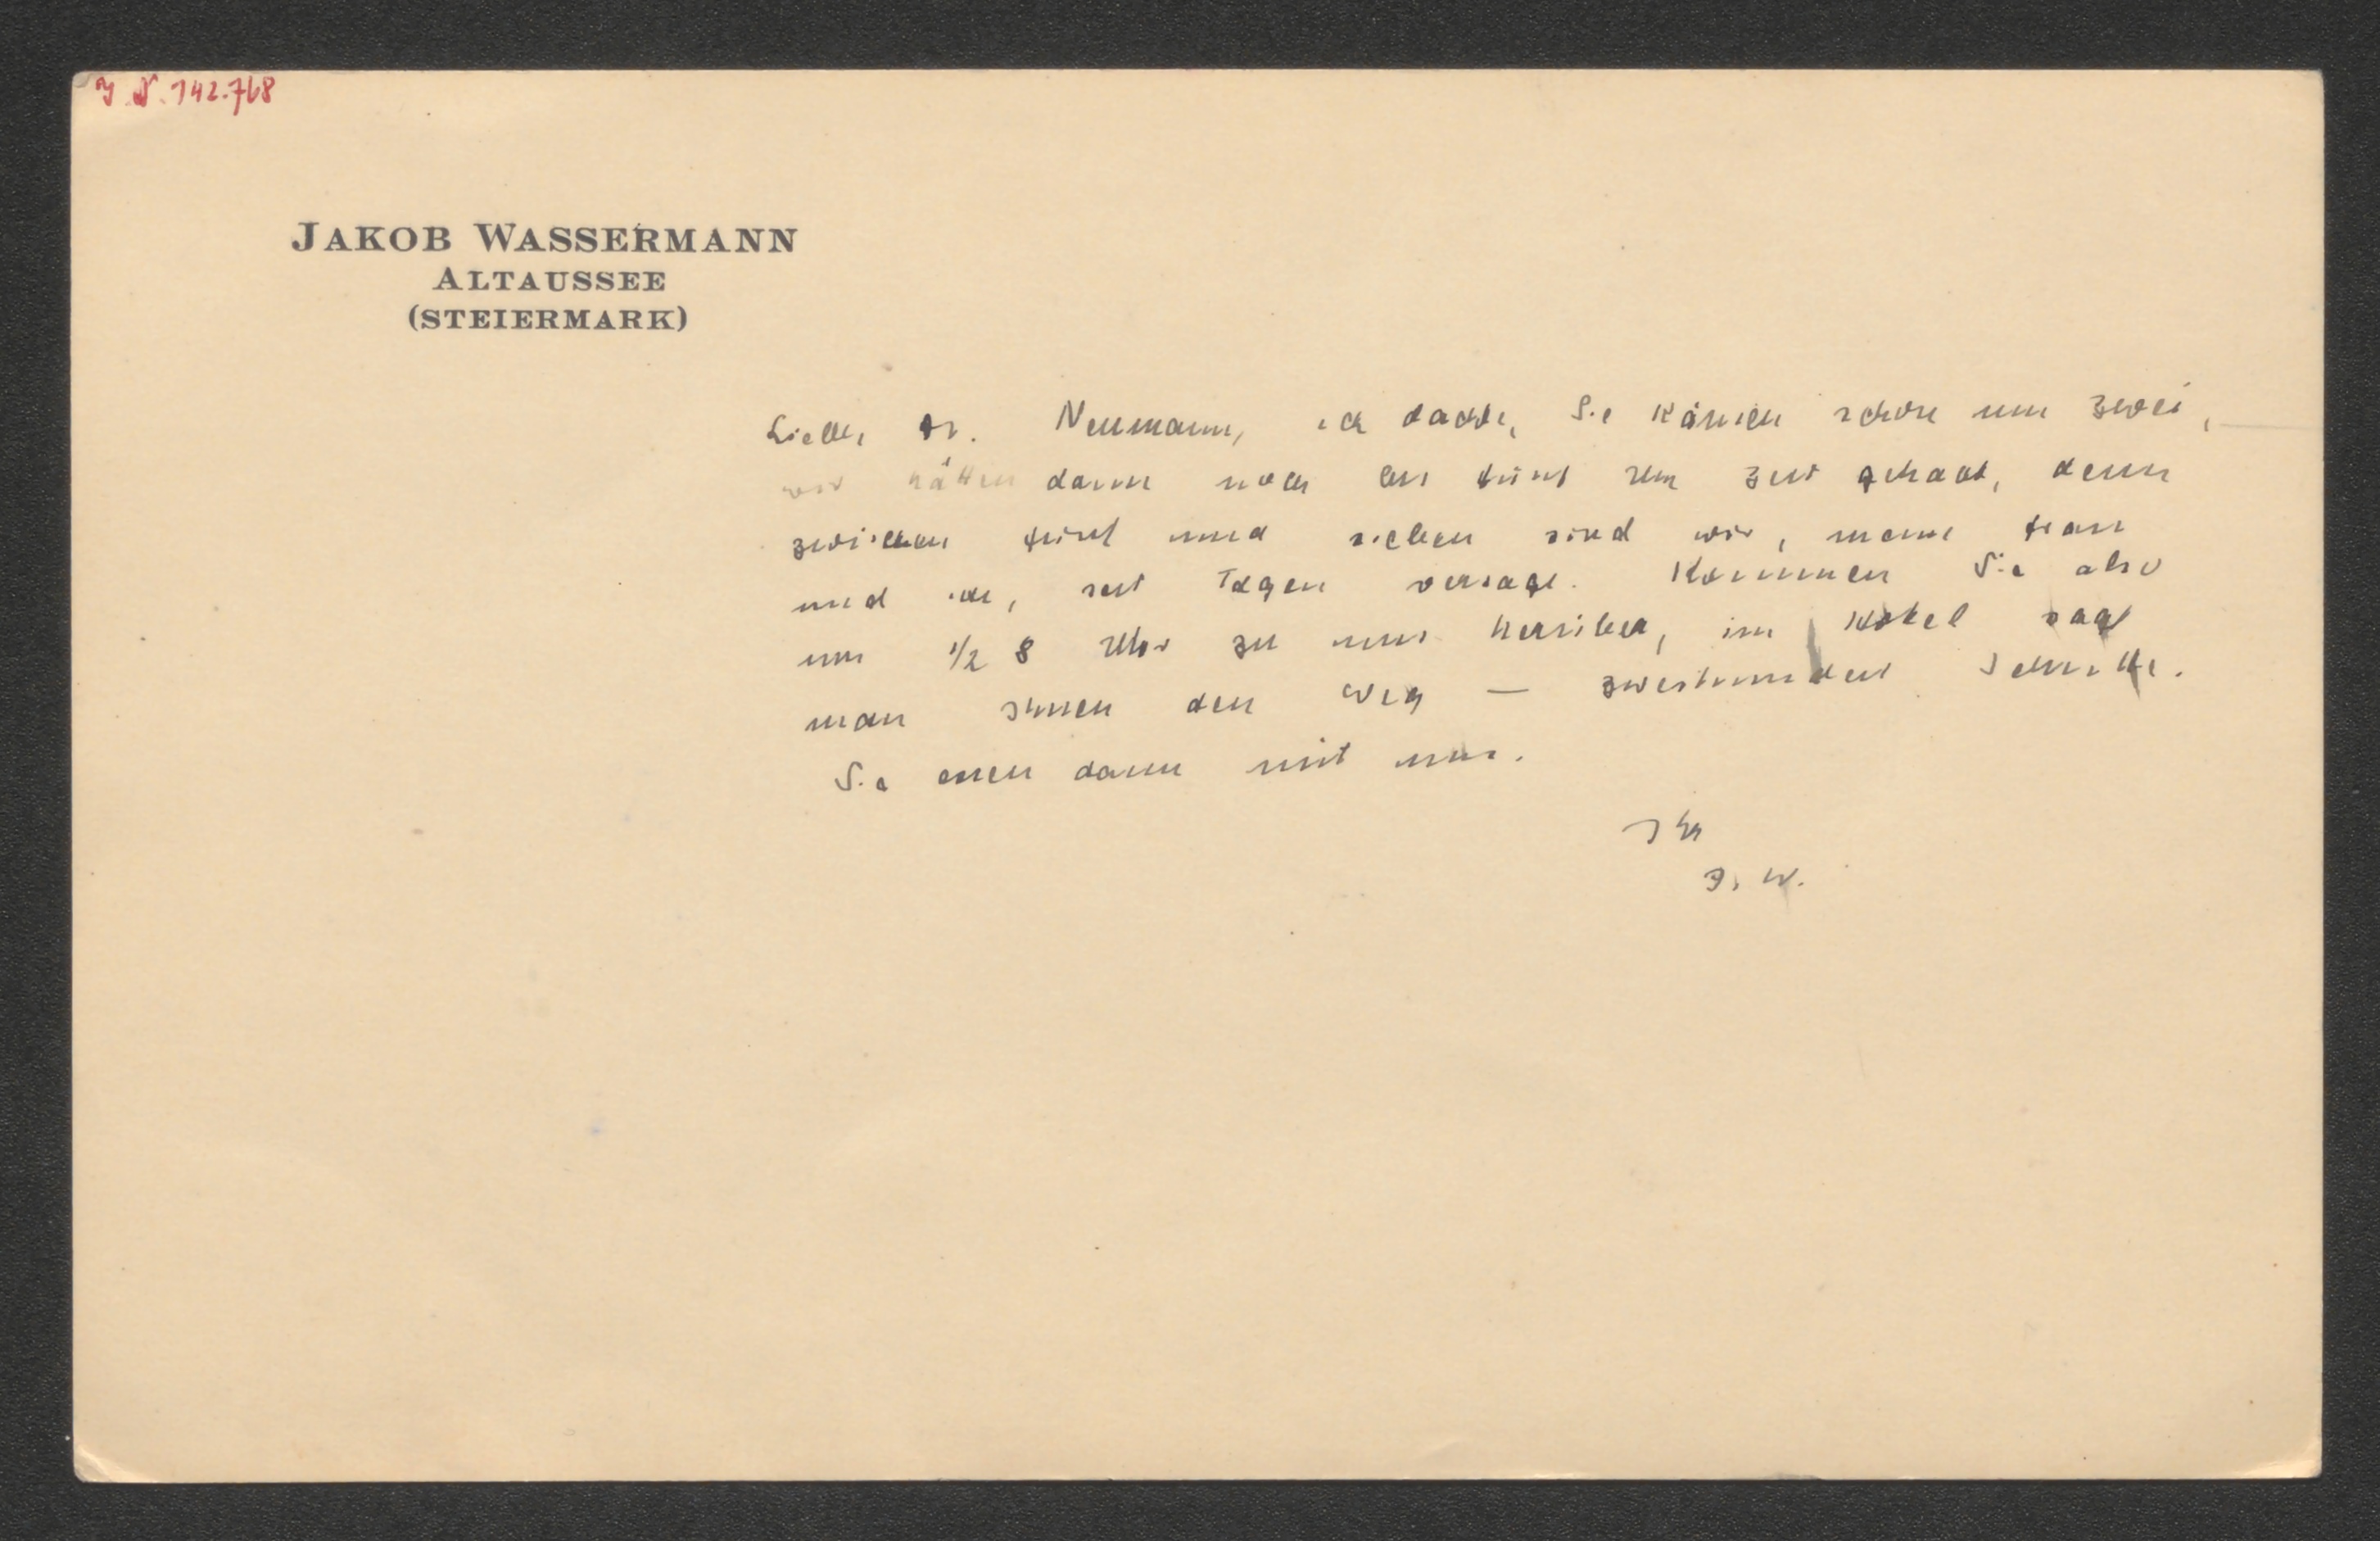 I. N. 142.768
JAKOB WASSERMANN
ALTAUSSEE
(STEIERMARK)
Lieber Dr. Neumann, ich dachte, Sie kämen schon um zwei,
wir hätten dann noch bis fünf Uhr Zeit gehabt, denn
zwischen fünf und sieben sind wir, meine Frau
und ich, seit Tagen versagt. Kommen Sie also
um 1/2 8 Uhr zu uns herüber, im Hotel sagt
man Ihnen den Weg — zweihundert Schritte.
Sie essen dann mit uns.
Ihr
J. W.